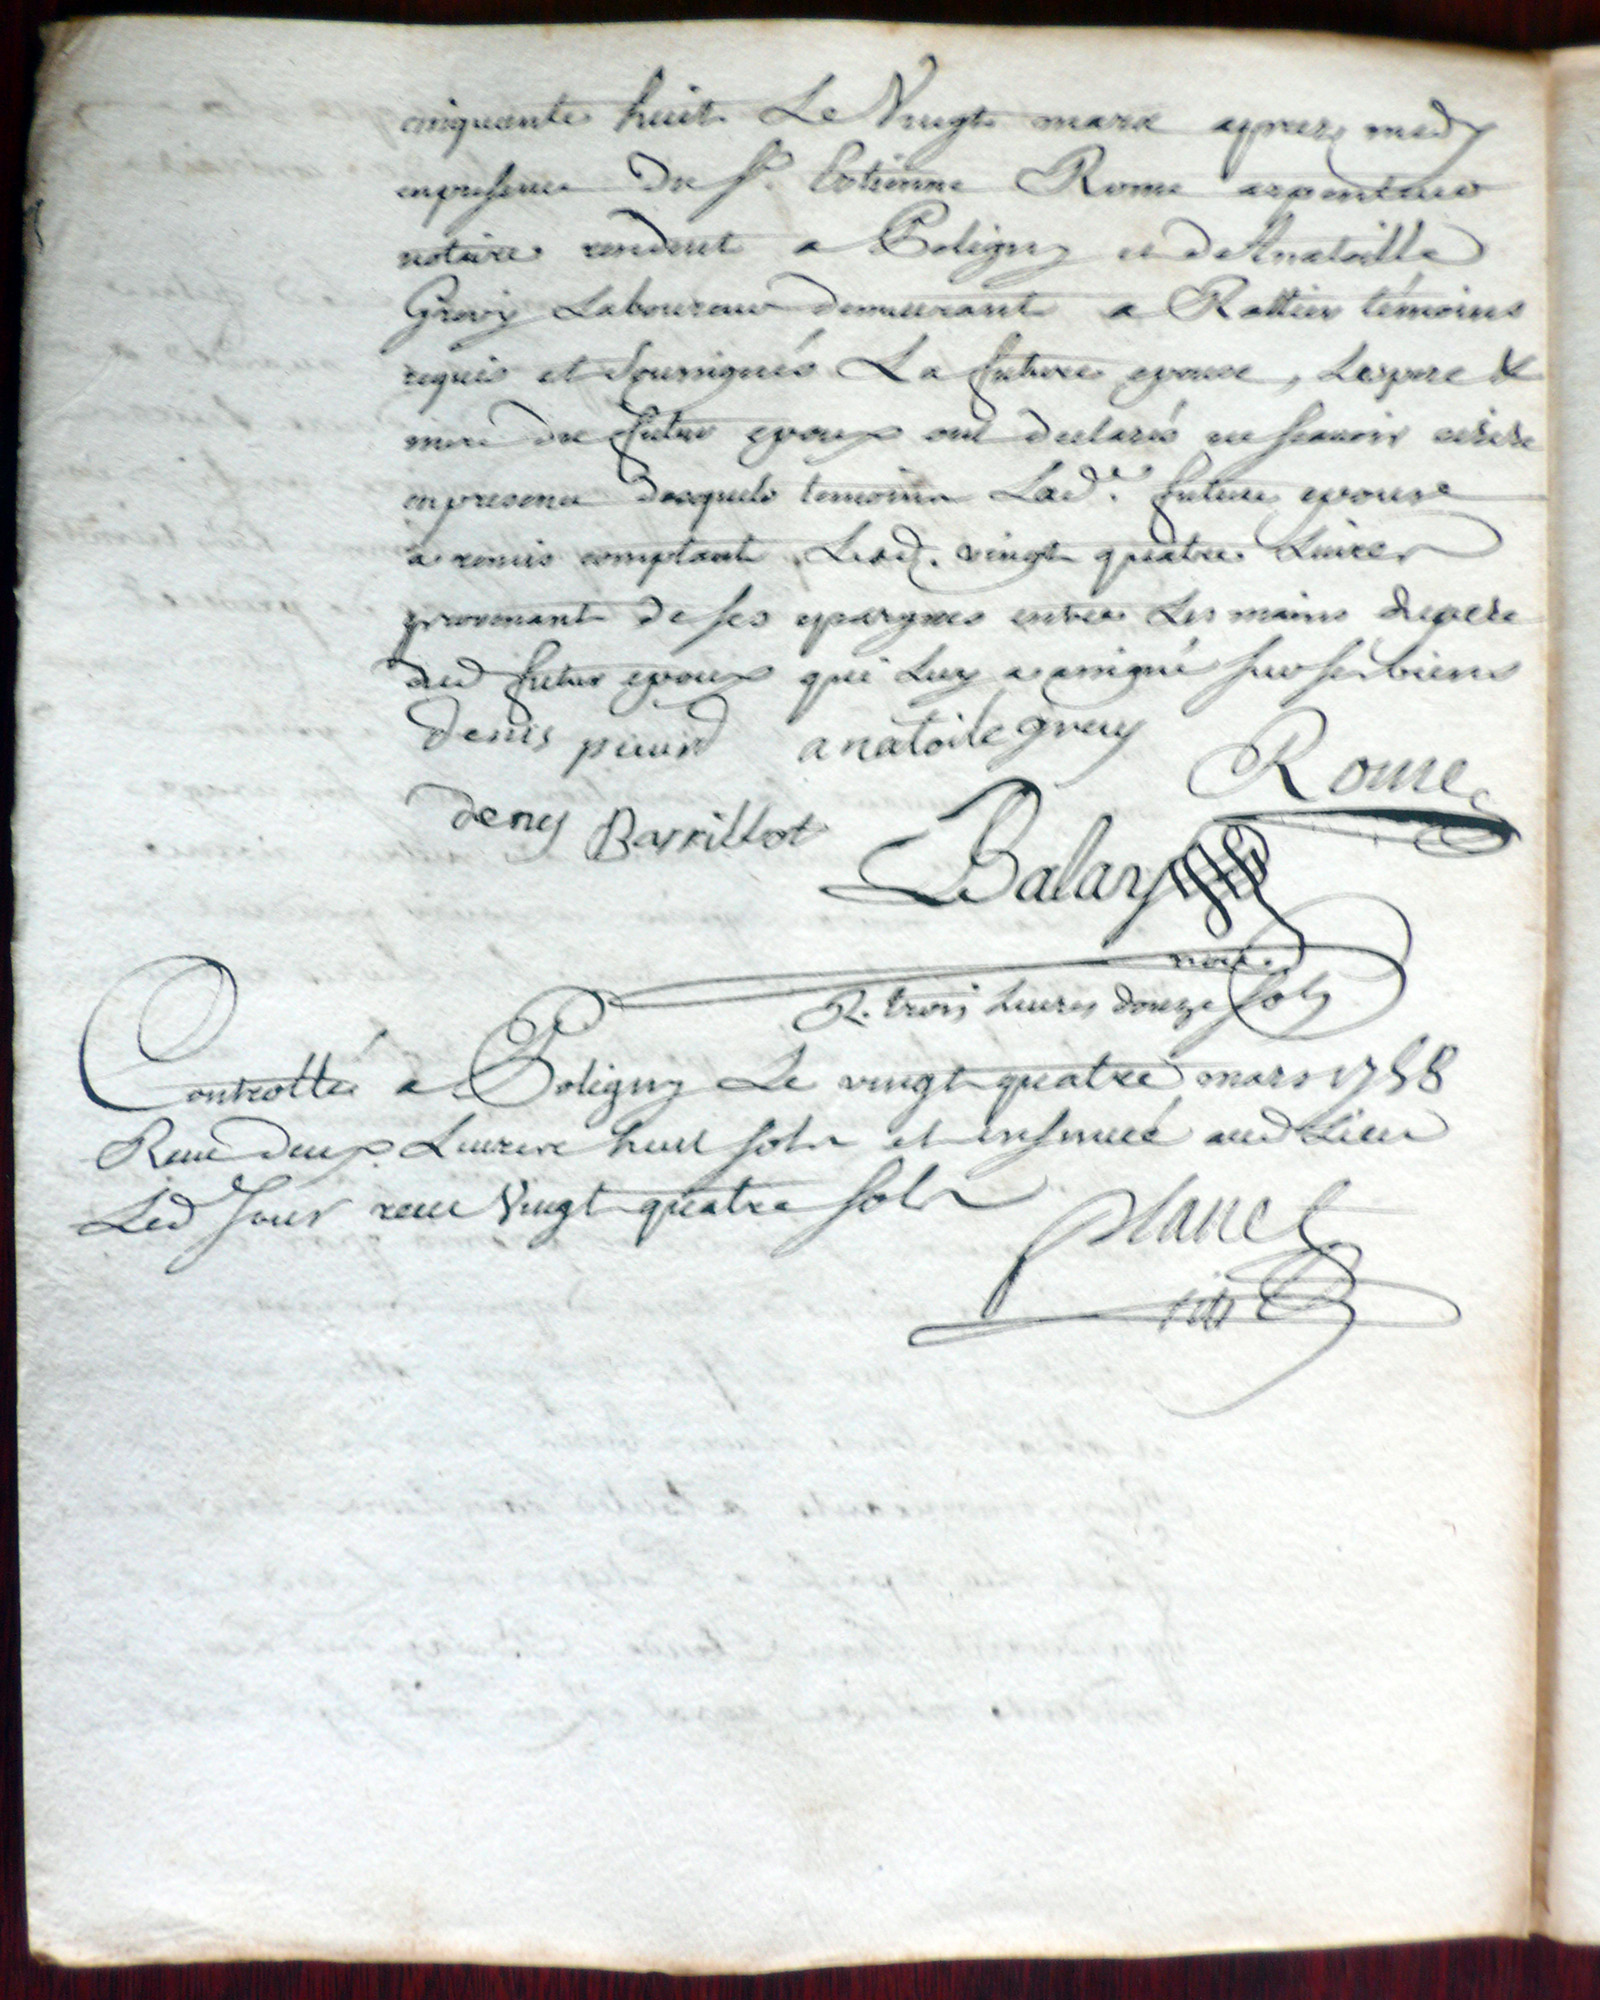 cinquante huit Le Vingt mars apres midy
en presence du Sr. Estienne Rome arpenteur
notaire residant a Poligny et de Anatoille
Grevy Laboureur demeurant a Rattier témoins
requis et soussignés La future epouse, Les pere &
mere du futur epoux ont declarés ne scavoir ecrire
en presence desquels temoins Lade. future epouse
a remis comptant Lesd. vingt quatre Livres
provenant de ses epargnes entre Les mains du pere
dud futur epoux qui Luy a assigné sur ses biens
denis anatoile grevy
Rome
denys Barrillot
Balay
R. trois Livres douze sols
Controllé a Poligny Le vingt quatre mars 1758
Receu deux Livres huit sols et insinué aud Lieu
Led Jour receu Vingt quatre sols